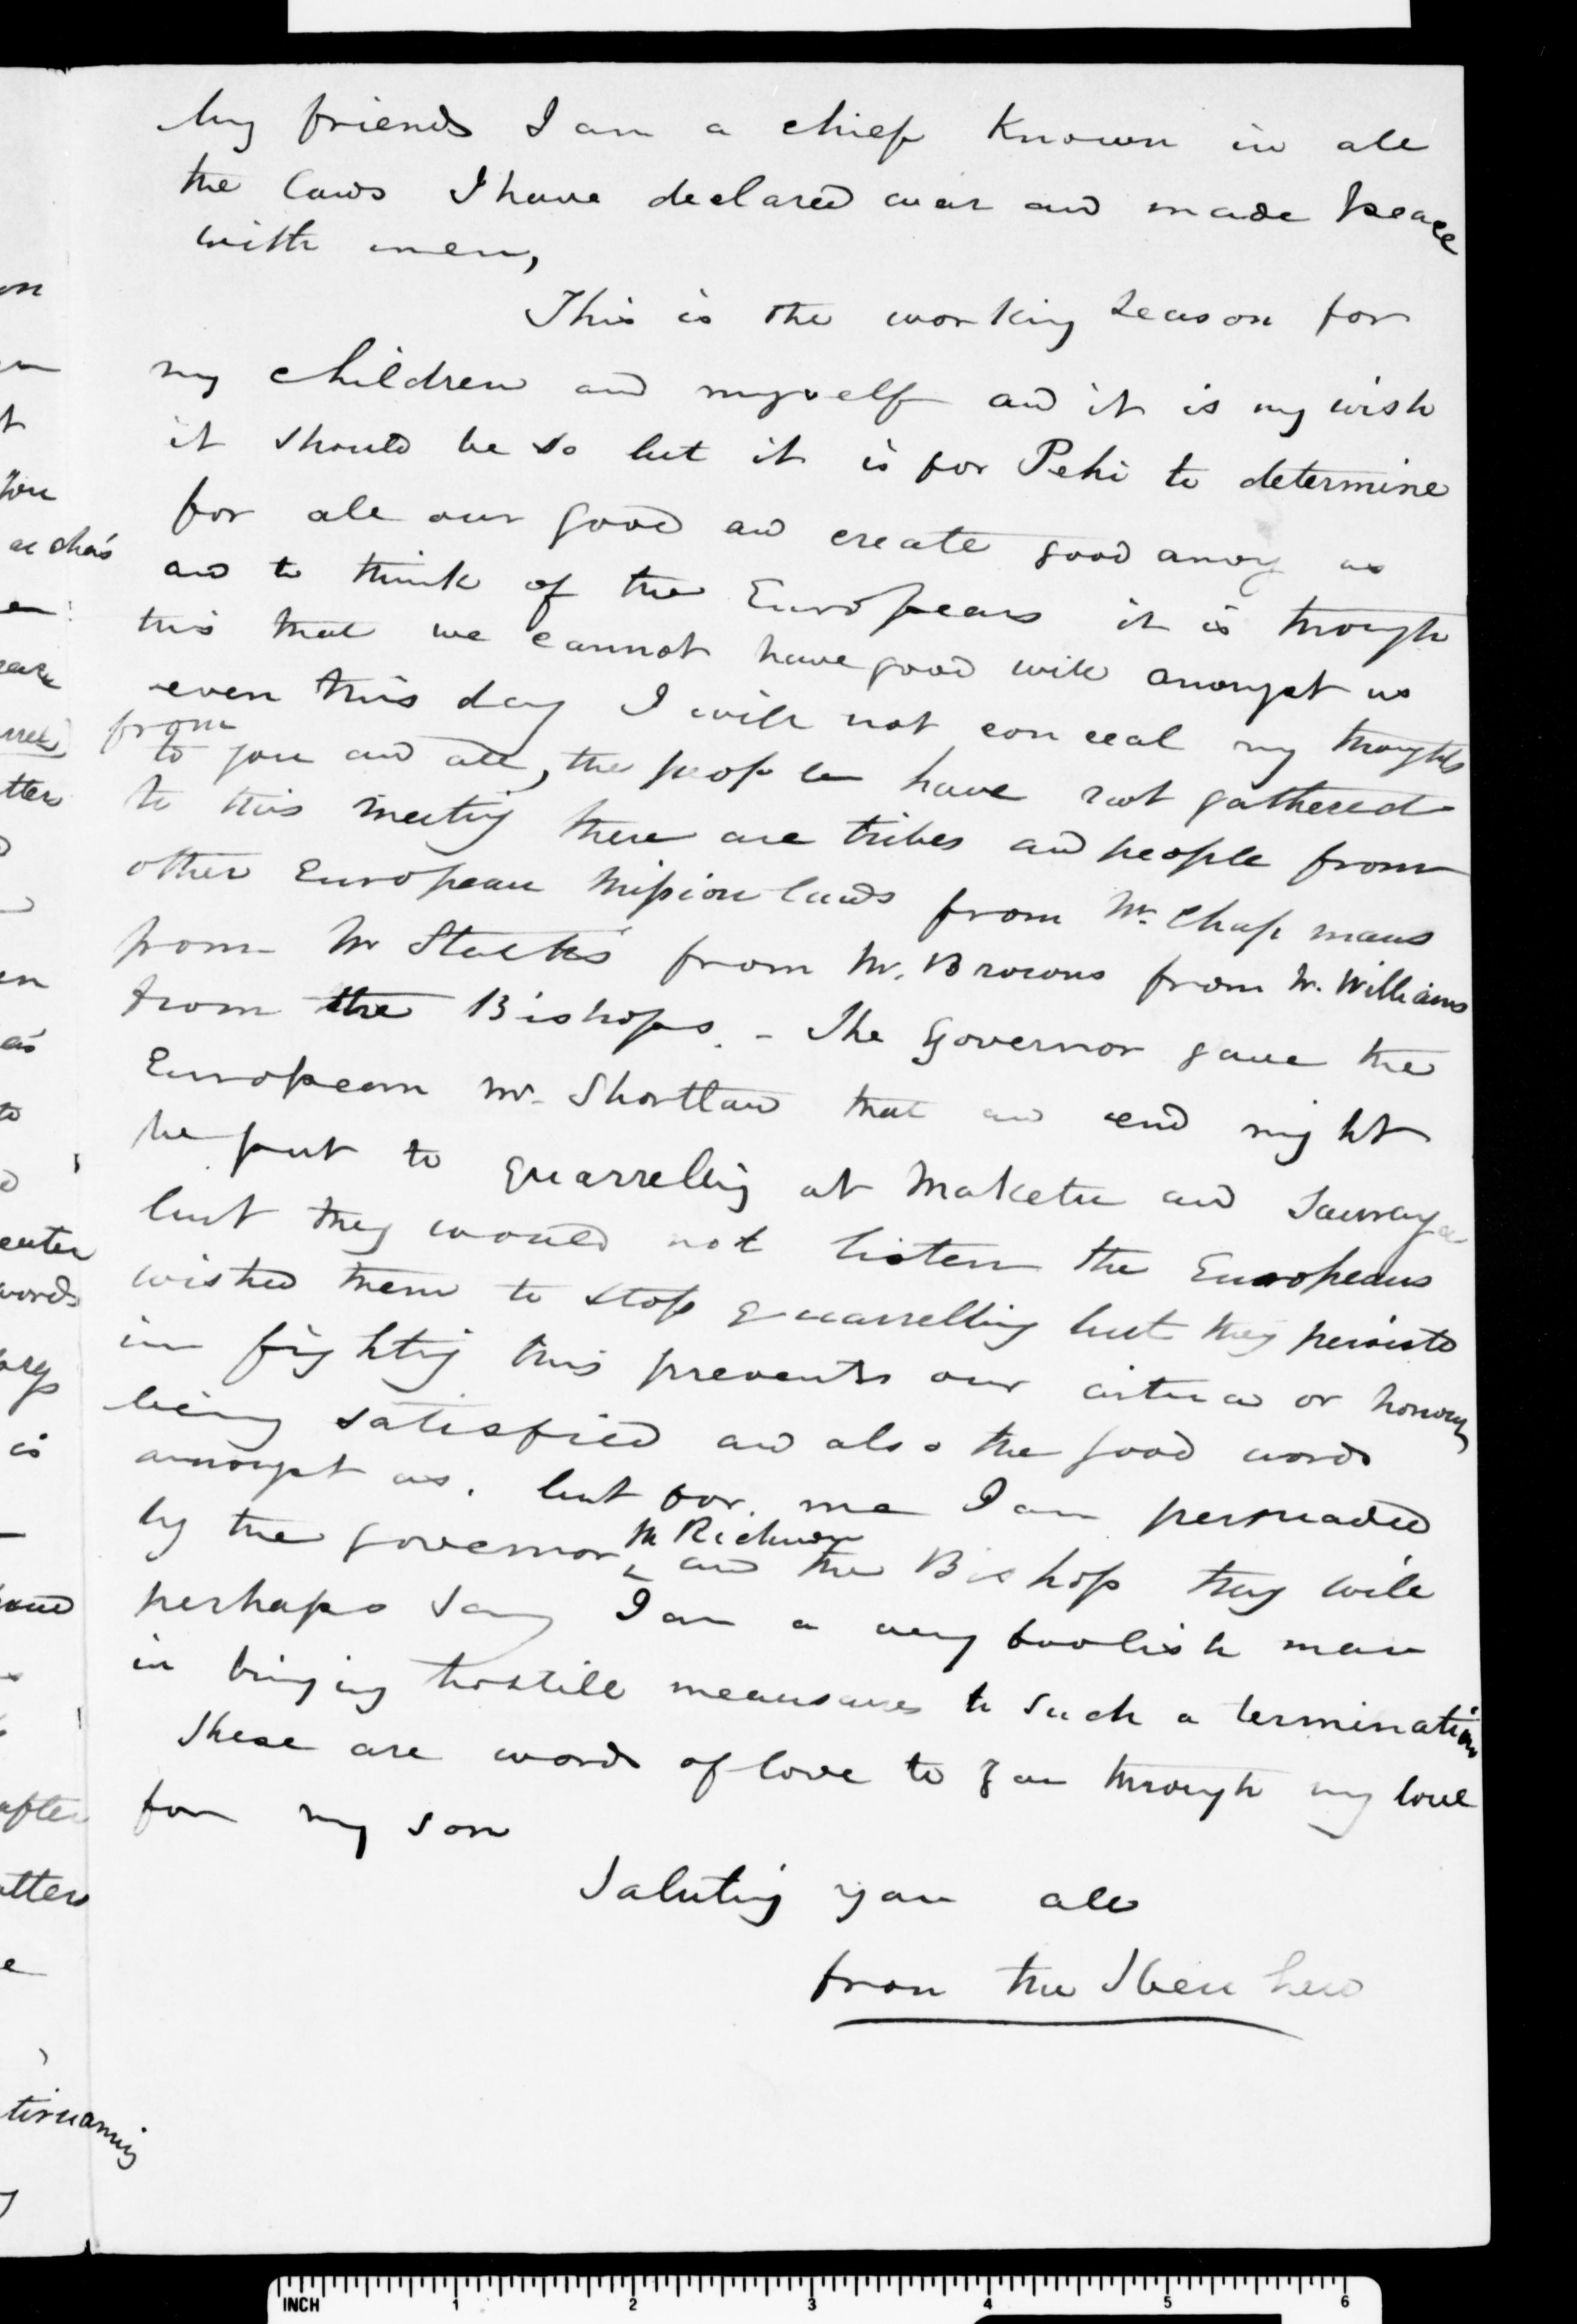 My friends I am a chief Known in all
the laws I have declared war and made peace
with men,
This is the working season for
my children and myself and it is my wish
it should be so but it is for Pehi to determine
for all our good and create good among us
and to think of the Europeans it is through
this that we cannot have good will amongst us
even this day I will not conceal my thoughts
from
to you and all, the people have not gathered
to this meeting there are tribes and people from
other European Mission lands from Mr. Chapmans
from Mr Stacks from Mr. Browns from Mr. Williams
from the Bishops. - The Governor gave the
European Mr. Shortland that an end might
be put to quarrelling at Maketu and Tauranga
but they would not listen the Europeans
wished them to stop quarrelling but they persisted
in fighting this prevents our or honour
being satisfied and also the good words
amongst us. but for me I am persuaded
Mr Richmon
by the governor and the Bishop they will
perhaps say I am a very foolish man
in bringing hostile measures to such a termination
These are words of love to you through my love
for my son
Saluting you all
from the